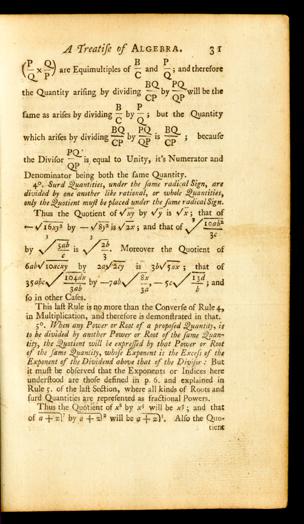 A Treatise of ALGEBRA. 31
(P/Q × Q/P) are Equimultiples of B/C and P/Q; and therefore
the Quantity arising by dividing BQ/CP by PQ/QP will be the
same as arises by dividing B/C by P/Q; but the Quantity
which arises by dividing BQ/CP by PQ/QP is BQ/CP; because
the Divisor PQ/QP is equal to Unity, it's Numerator and
Denominator being both the same Quantity.
4°. Surd Quantities, under the same radical Sign, are
divided by one another like rational, or whole Quantities,
only the Quotient must be placed under the same radical Sign.
Thus the Quotient of √xy by √y is √x; that of
by Moreover the Quotient of
6ab√10acxy by 2a√2cy is 3b√5ax; that of
and
so in other Cases.
This last Rule is no more than the Converse of Rule 4,
in Multiplication, and therefore is demonstrated in that.
5°. When any Power or Root of a proposed Quantity, is
to be divided by another Power or Root of the same Quan-
tity, the Quotient will be expressed by that Power or Root
of the same Quantity, whose Exponent is the Excess of the
Exponent of the Dividend above that of the Divisor: But
it must be observed that the Exponents or Indices here
understood are those defined in p. 6. and explained in
Rule 5. of the last Section, where all kinds of Roots and
surd Quantities are represented as fractional Powers.
Thus the Quotient of by will be and that
of by will be Also the Quo-
tient